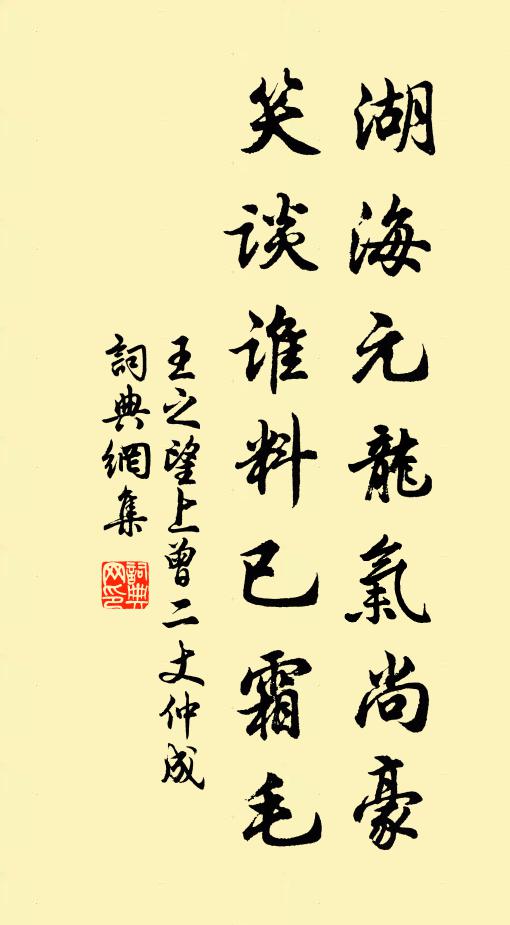 湖海元龍氣尚豪
笑談誰料已霜毛
王之望上曾二丈仲成
詞典網集
詞典网印